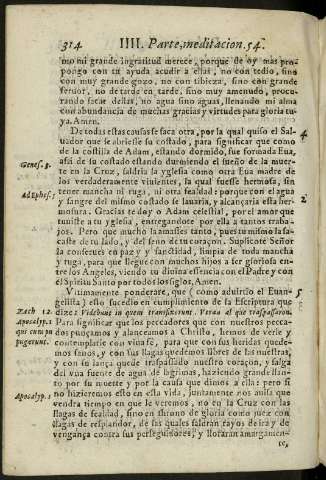 314 IIII. Parte, meditacion. 54.
mo mi grande ingratitud merece, porque de oy mas pro-
pongo con tu ayuda acudir a ellas, no con tedio, sino
con muy grande gozo, no con tibieza, sino con grande
feruor, no de tarde en tarde, sino muy amenudo, procu-
rando sacar dellas, no agua sino aguas, llenando mi alma
con abundancia de muchas gracias y virtudes para gloria tu-
ya. Amen.
De todas estas causas se saca otra, por la qual quiso el Sal- 4
uador que se abriesse su costado, para significar que como
de la costilla de Adam, estando dormido, fue formada Eua,
Genes. 3. assi de su costado estando durmiendo el sueño de la muer-
te en la Cruz, saldria la yglesia como otra Eua madre de
los verdaderamente viuientes, la qual fuesse hermosa, sin
Ad Ephes. 5. tener mancha ni ruga, ni otra fealdad; porque con el agua 2
y sangre del mismo costado se lauaria, y alcançaria esta her-
mosura. Gracias te doy o Adam celestial, por el amor que
tuuiste a tu yglesia, entregandote por ella a tantos traba-
jos. Pero que mucho la amasses tanto, pues tu mismo la sa-
caste de tu lado, y del seno de tu coraçon. Suplicote Señor
la conserues en paz y santidad, limpia de toda mancha
y ruga, para que llegue con muchos hijos a ser gloriosa en-
tre los Angeles, viendo tu diuina essencia con el Padre y con
el Spiritu Santo por todos los siglos, Amen.
Vltimamente ponderarè, que (como aduirtio el Euan- 5
gelista) esto sucedio en cumplimiento de la Escriptura que
Zach. 12. dize: Videbunt in quem transfixerunt. Veran al que traspassaron.
Apocalyp. 1 Para significar que los pecadores que con nuestros pecca-
qui eum pu dos punçamos y alanceamos a Christo, hemos de verle y
pugerunt. contemplarle con viua fè, para que con sus heridas quede-
mos sanos, y con sus llagas quedemos libres de las nuestras;
y con su lança quede traspassado nuestro coraçon, y salga
del vna fuente de agua de lagrimas, haziendo grande llan-
to por su muerte y por la causa que dimos a ella: pero si
no hizieremos esto en esta vida, juntamente nos auisa que
Apocalyp. 1 vendra tiempo en que le veremos, no en la Cruz con las
llagas de fealdad, sino en throno de gloria como juez con
llagas de resplandor, de las quales saldran rayos de ira y de
vengança contra sus perseguidores, y lloraràn amargamen-
te,